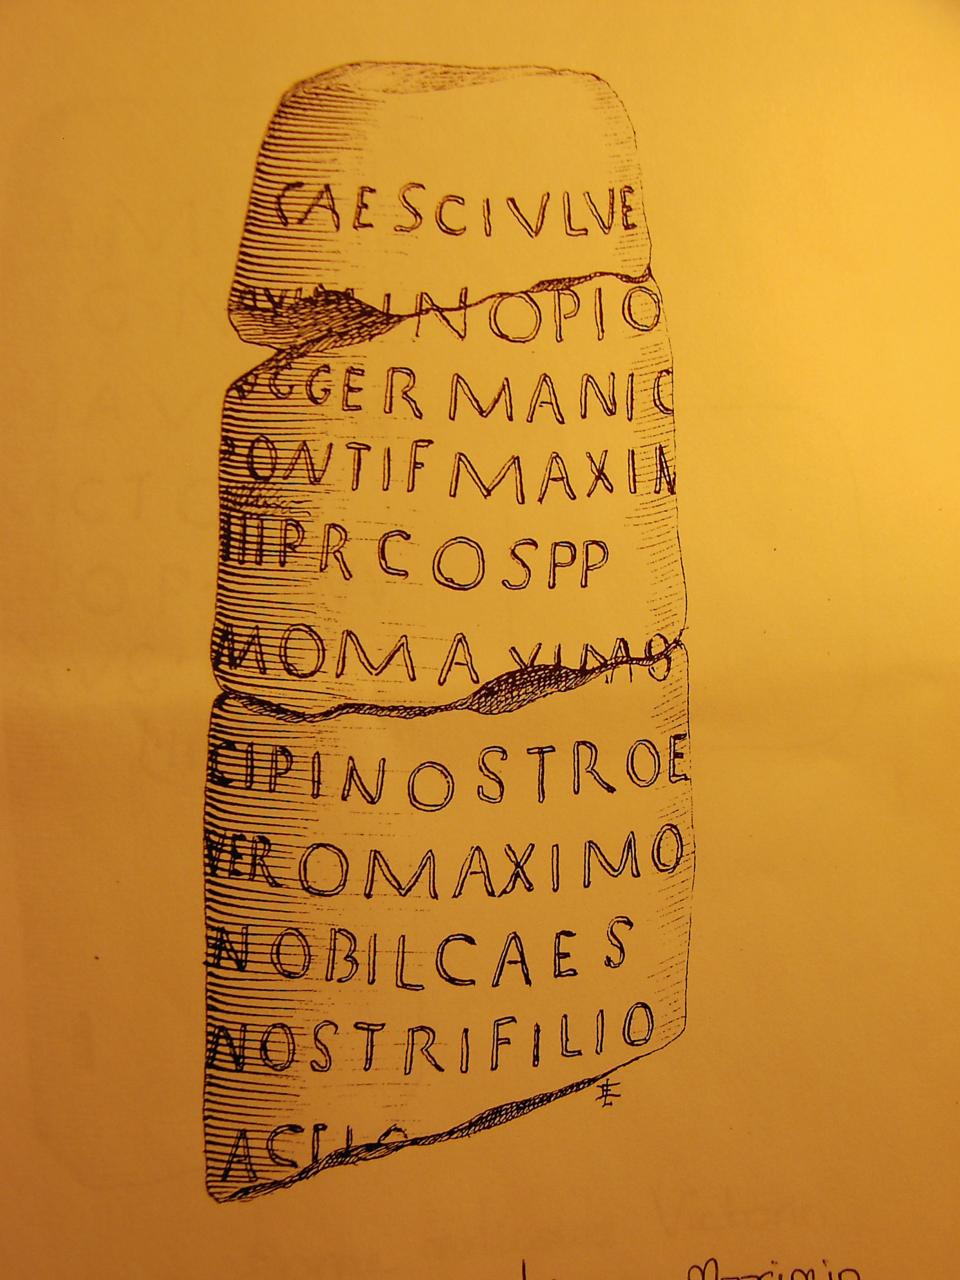 CAESCIVLVE
INOPIO
GGERMANIC
PONTIFMAXIM
IIIIPRCOSPP
MOMAXIMO
CIPINOSTROE
VEROMAXIMO
NOBILCAES
NOSTRIFILIO
ACTIO